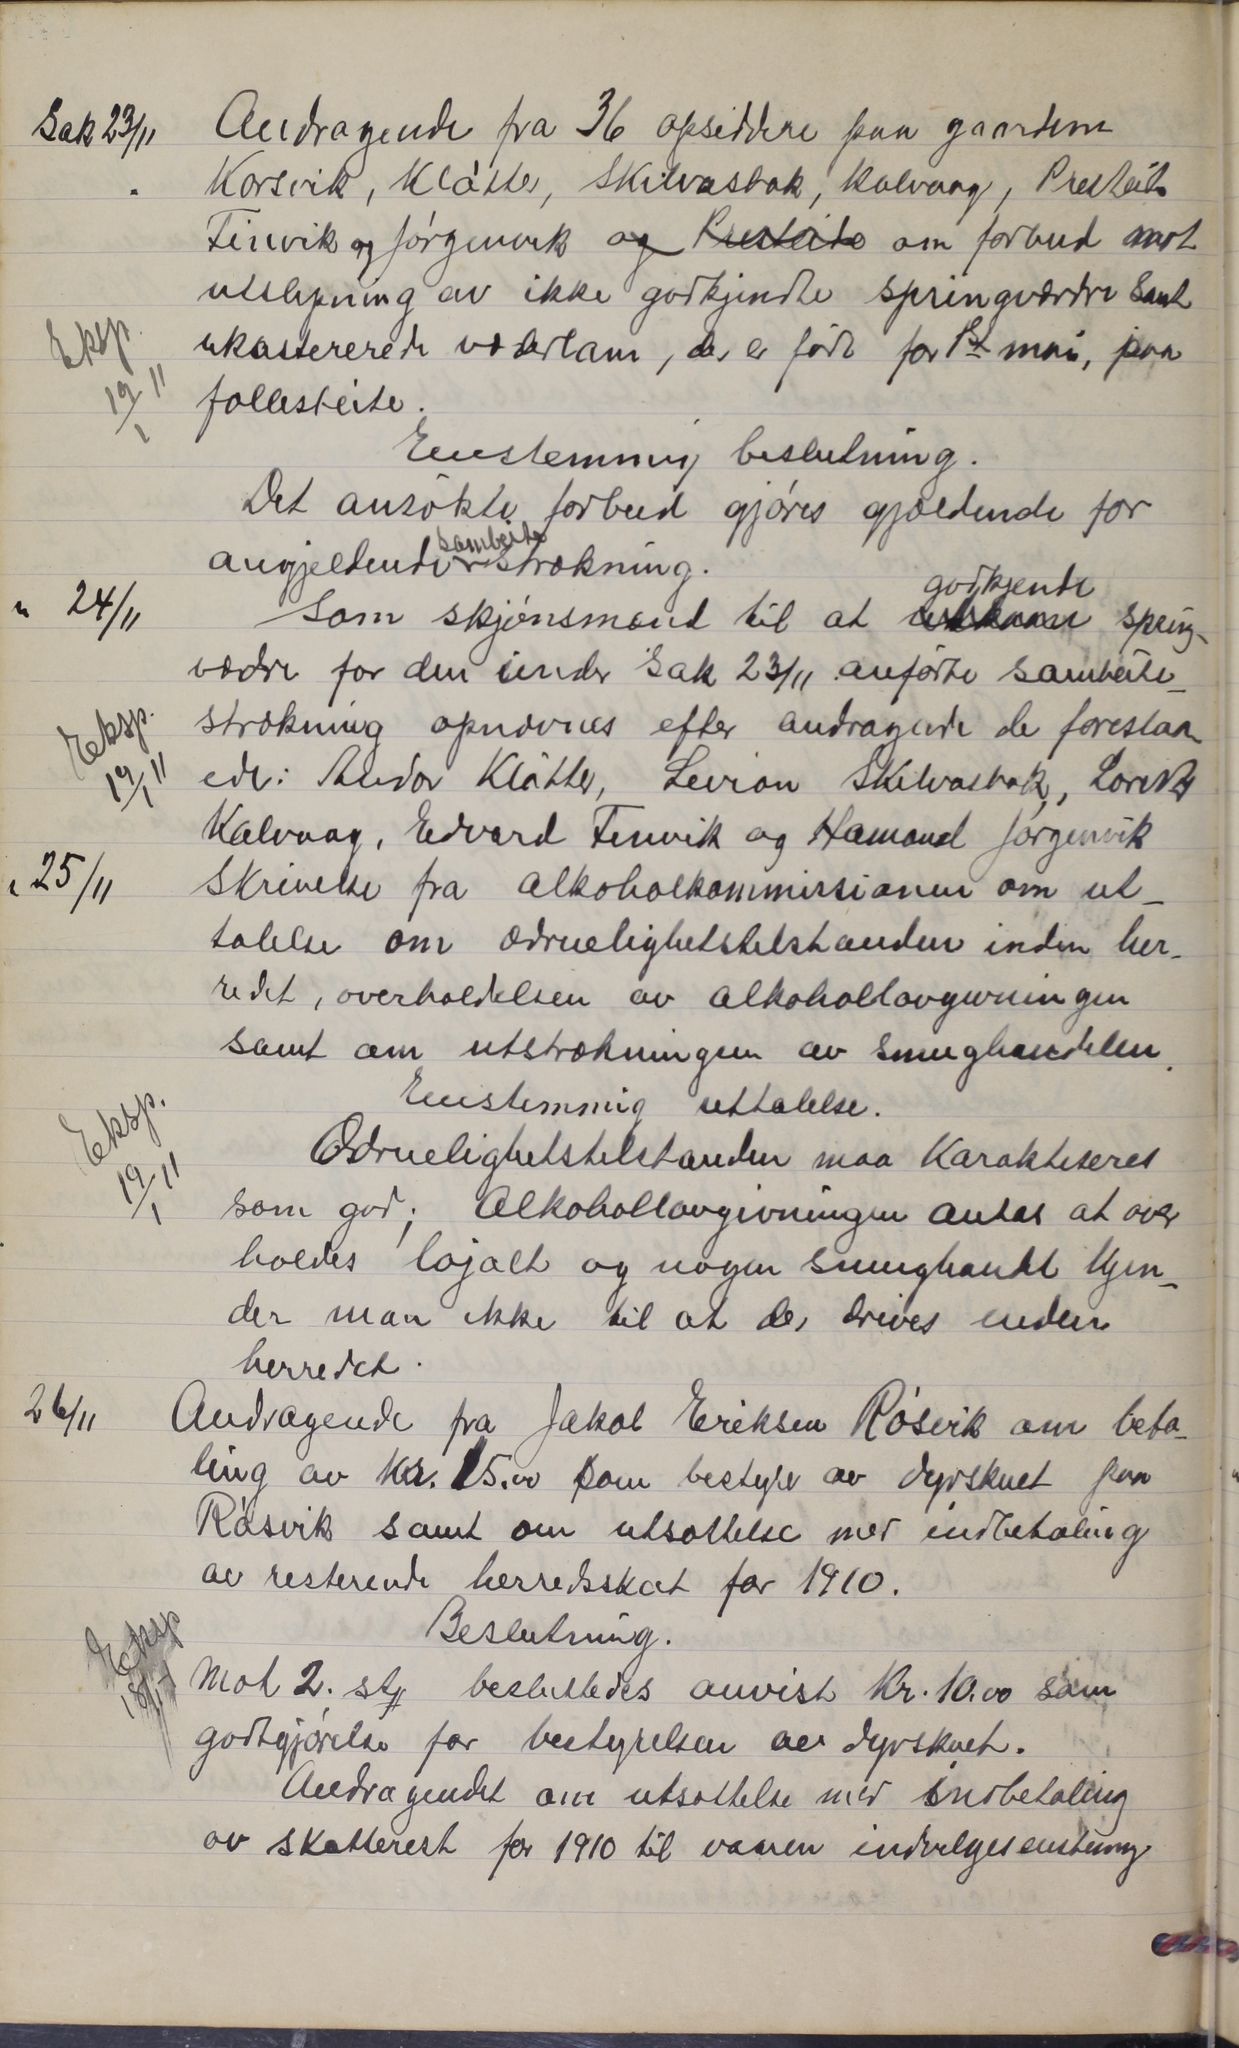 Sak 23/11 Andragende fra 36 opsiddere paa gaardene
Korsvik, Kløtter, Skilvasbak, Kalvaag, Presteite
Finvik og Jörgenvik og Presteite om forbud mot
utslipning av ikke godkjendte springværdre samt
ukastererede væderlam, der er födt før 1ste mai, paa
Eksp. 19/1 11
fællesbeite.
Enstemmig beslutning.
Det ansökte forbud gjöres gjældende for
angjeldende sambeitestrækning.
" 24/11 Som skjönsmænd til at godkjende spring-
vædre for den under Sak 23/11 anförte sambeite-
strækning opnævnes efter andragende de foreslaa-
Eksp. 19/1 11
ede: Andor Kløtter, Levion Skilvasbak, Lorents
Kalvaag, Edvard Finvik og Hamond Jörgenvik
" 25/11 Skrivelse fra alkoholkommissionen om ut-
talelse om ædruelighetstilstanden inden her-
redet, overholdelsen av alkohollovgivningen
samt om utstrækningen av smughandelen.
Enstemmig uttalelse.
Eksp. 19/1 11
Ædruelighetstilstanden maa karakteseres
som god; Alkohollovgivningen antas at over
holdes lojalt og nogen smughandel kjen-
der man ikke til at der drives inden
herredet.
26/11 Andragende fra Jakob Eriksen Rösvik om beta-
ling av Kr. 15.00 som bestyrer av dyrskuet paa
Rösvik samt om utsættelse med indbetaling
av resterende herredsskat for 1910.
Beslutning.
Eksp
Mot 2. st. besluttedes anvist Kr. 10.00 som
godtgjörelse for bestyrelsen av dyrskuet.
Andragendet om utsættelse med indbetaling
av skatterest for 1910 til vaaren indvilges enstemmig